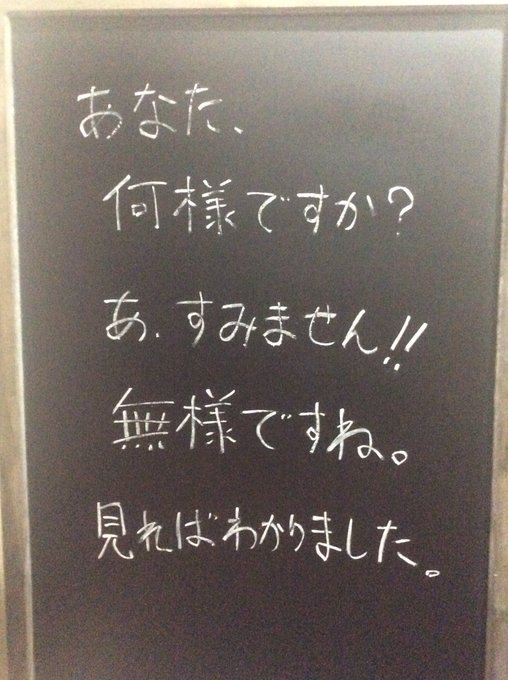 あなた、
何様ですか?
あ、すみません!!
無様ですね。
見ればわかりました。